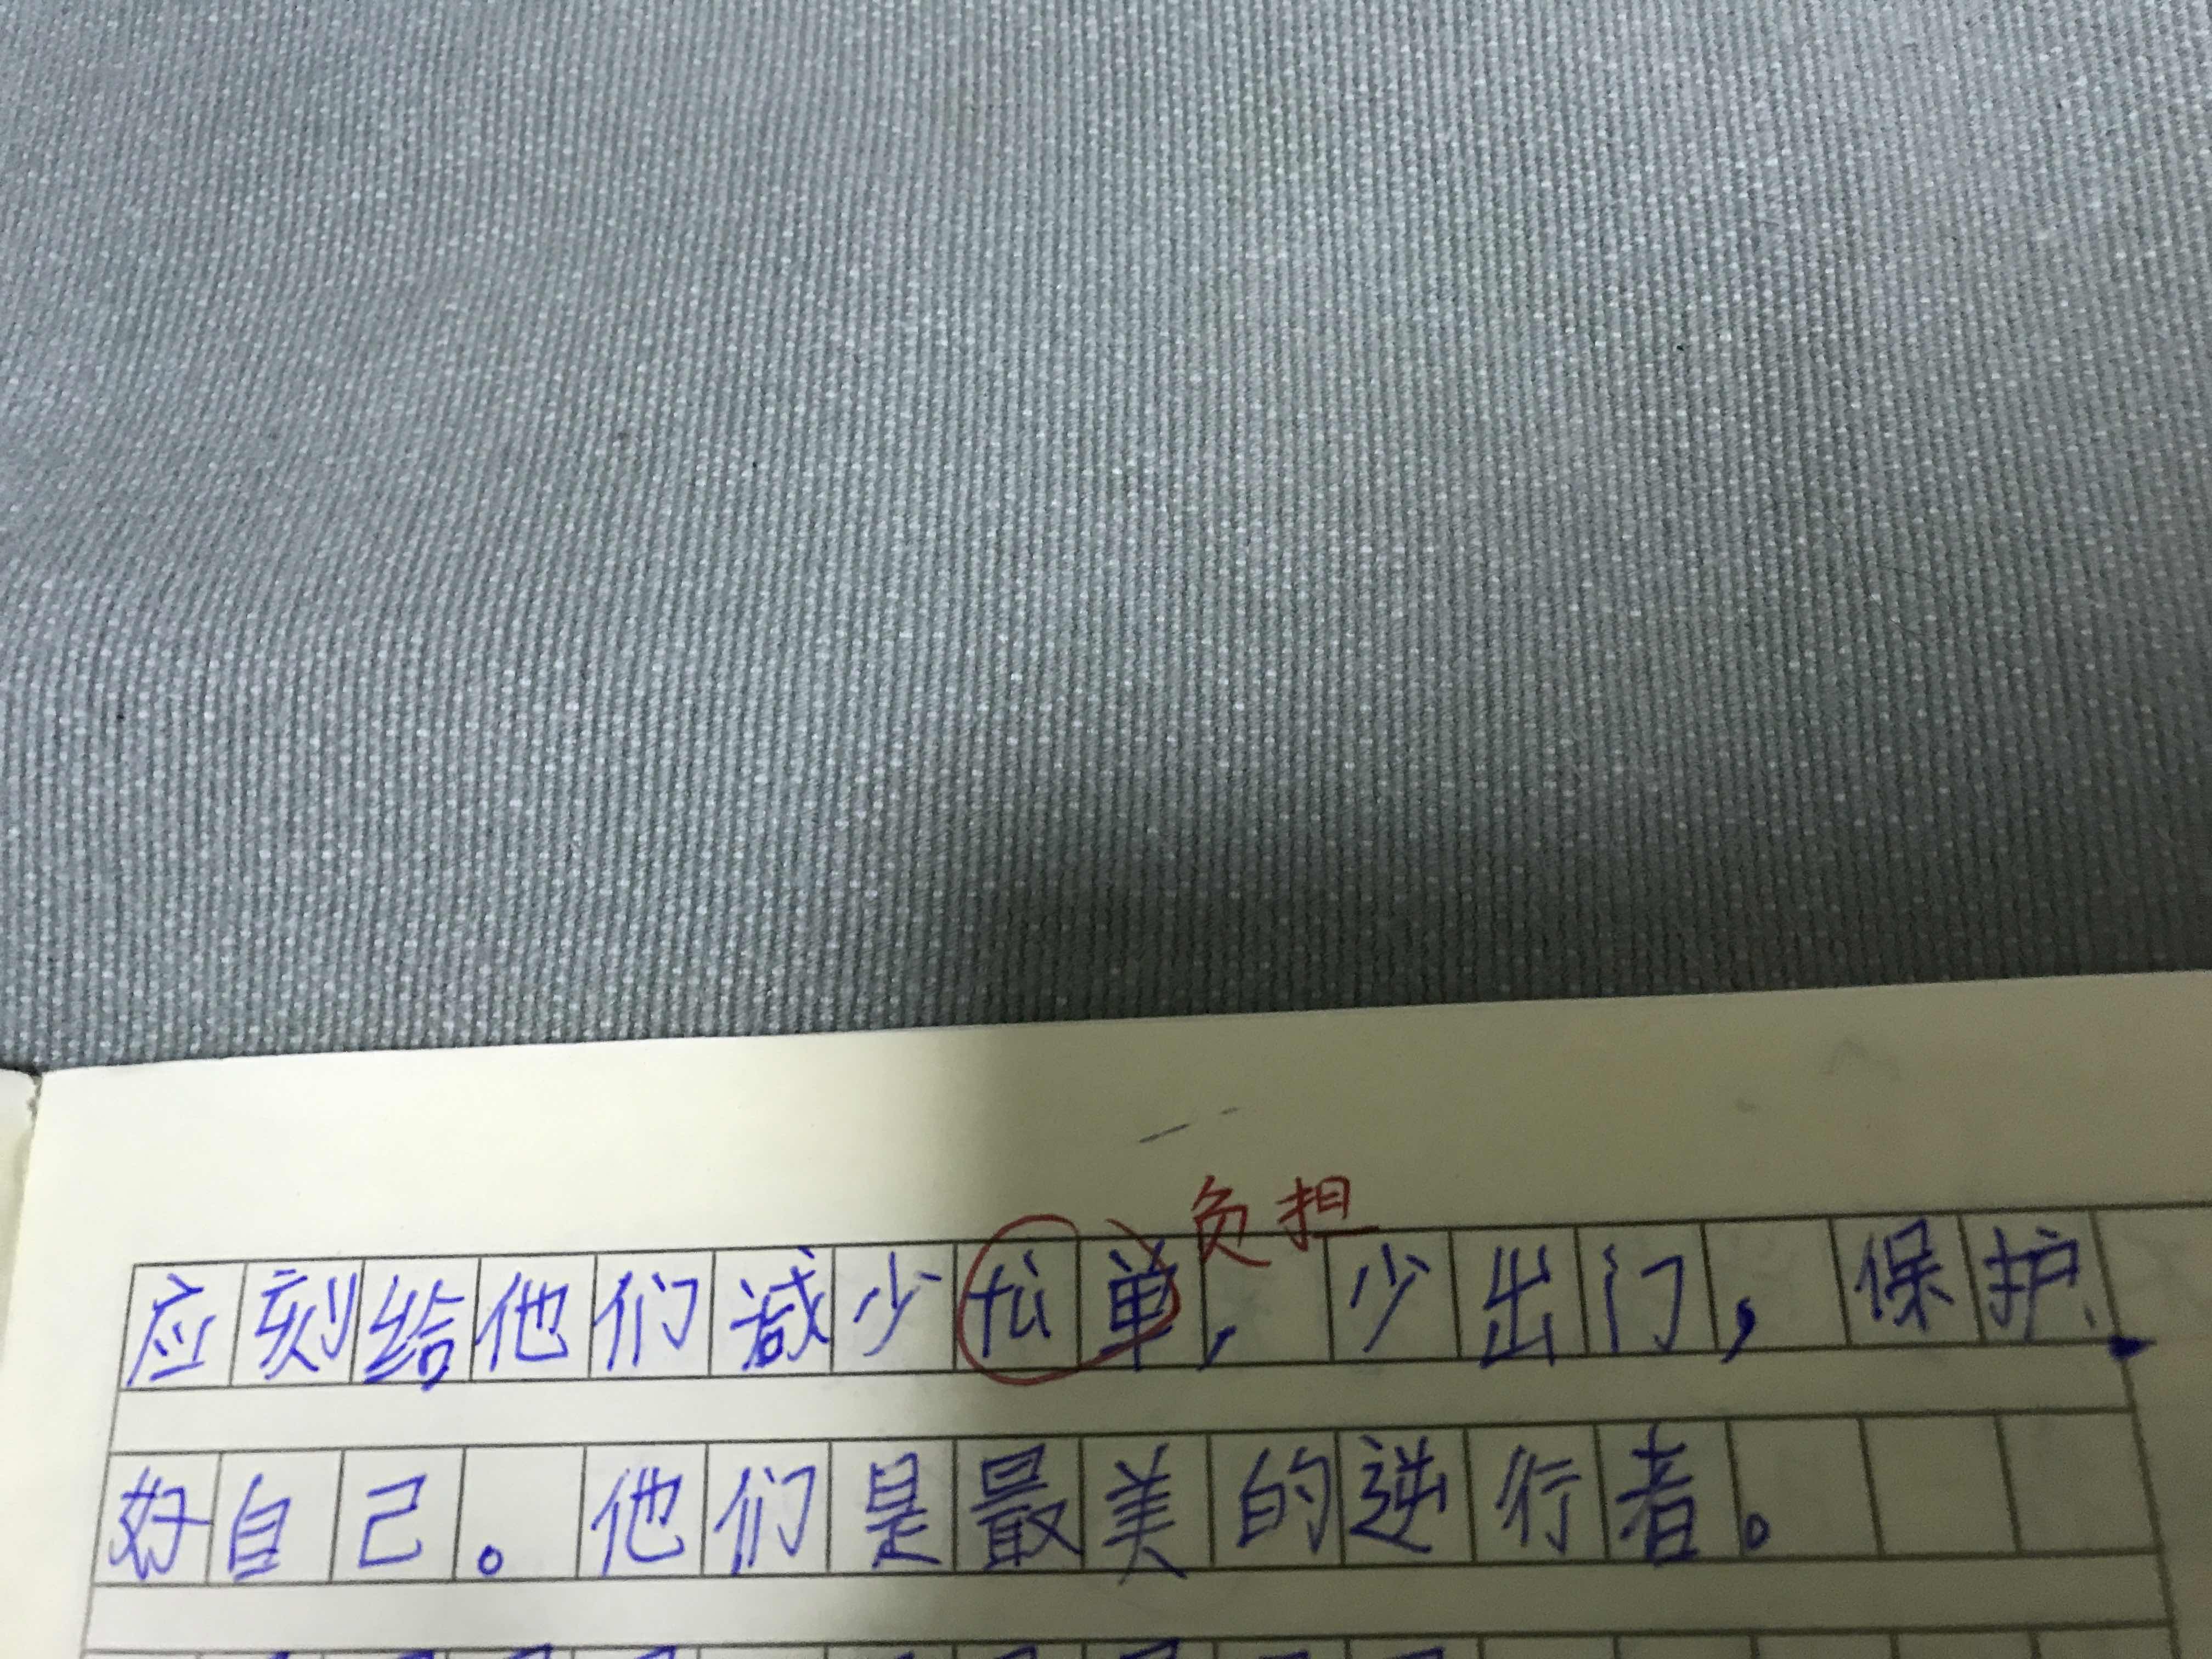 负担
应刻给他们减少忪单，少出门，保护
好自己。他们是最美的逆行者。